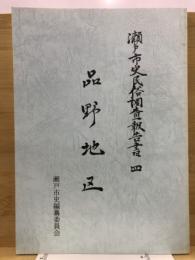 瀬戸市史民俗調査報告書 四
品野地区
瀬戸市史編纂委員会